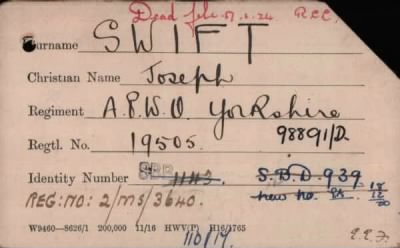 Dead file 17.6.24 R.C.C.
Surname SWIFT
Christian Name Joseph
Regiment A.P.W.O. Yorkshire
Regtl. No. 19505. 98891/D.
Identity Number SRD 1143. S.B.D. 939. 18/12/20
REG: NO: 2/MS/3640. new no.
W9460—8626/1 200,000 11/16 HWV(P) H16/1765
110/17.